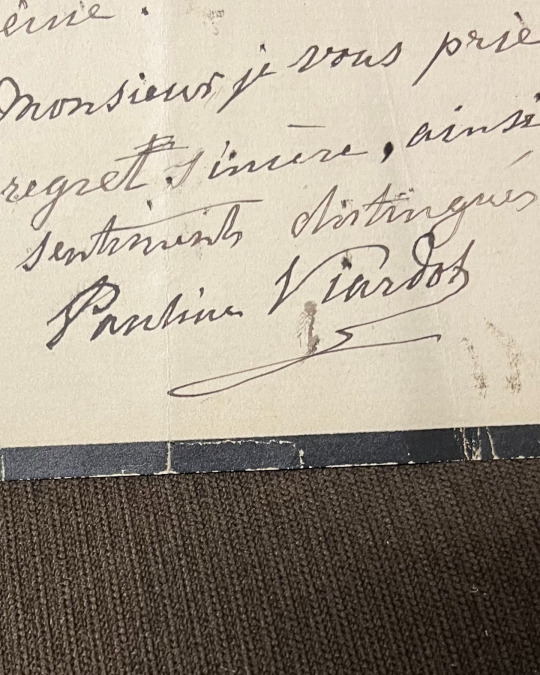 ême.
Monsieur je vous prie
regret sincère, ainsi
sentiments distingués
Pauline Viardot